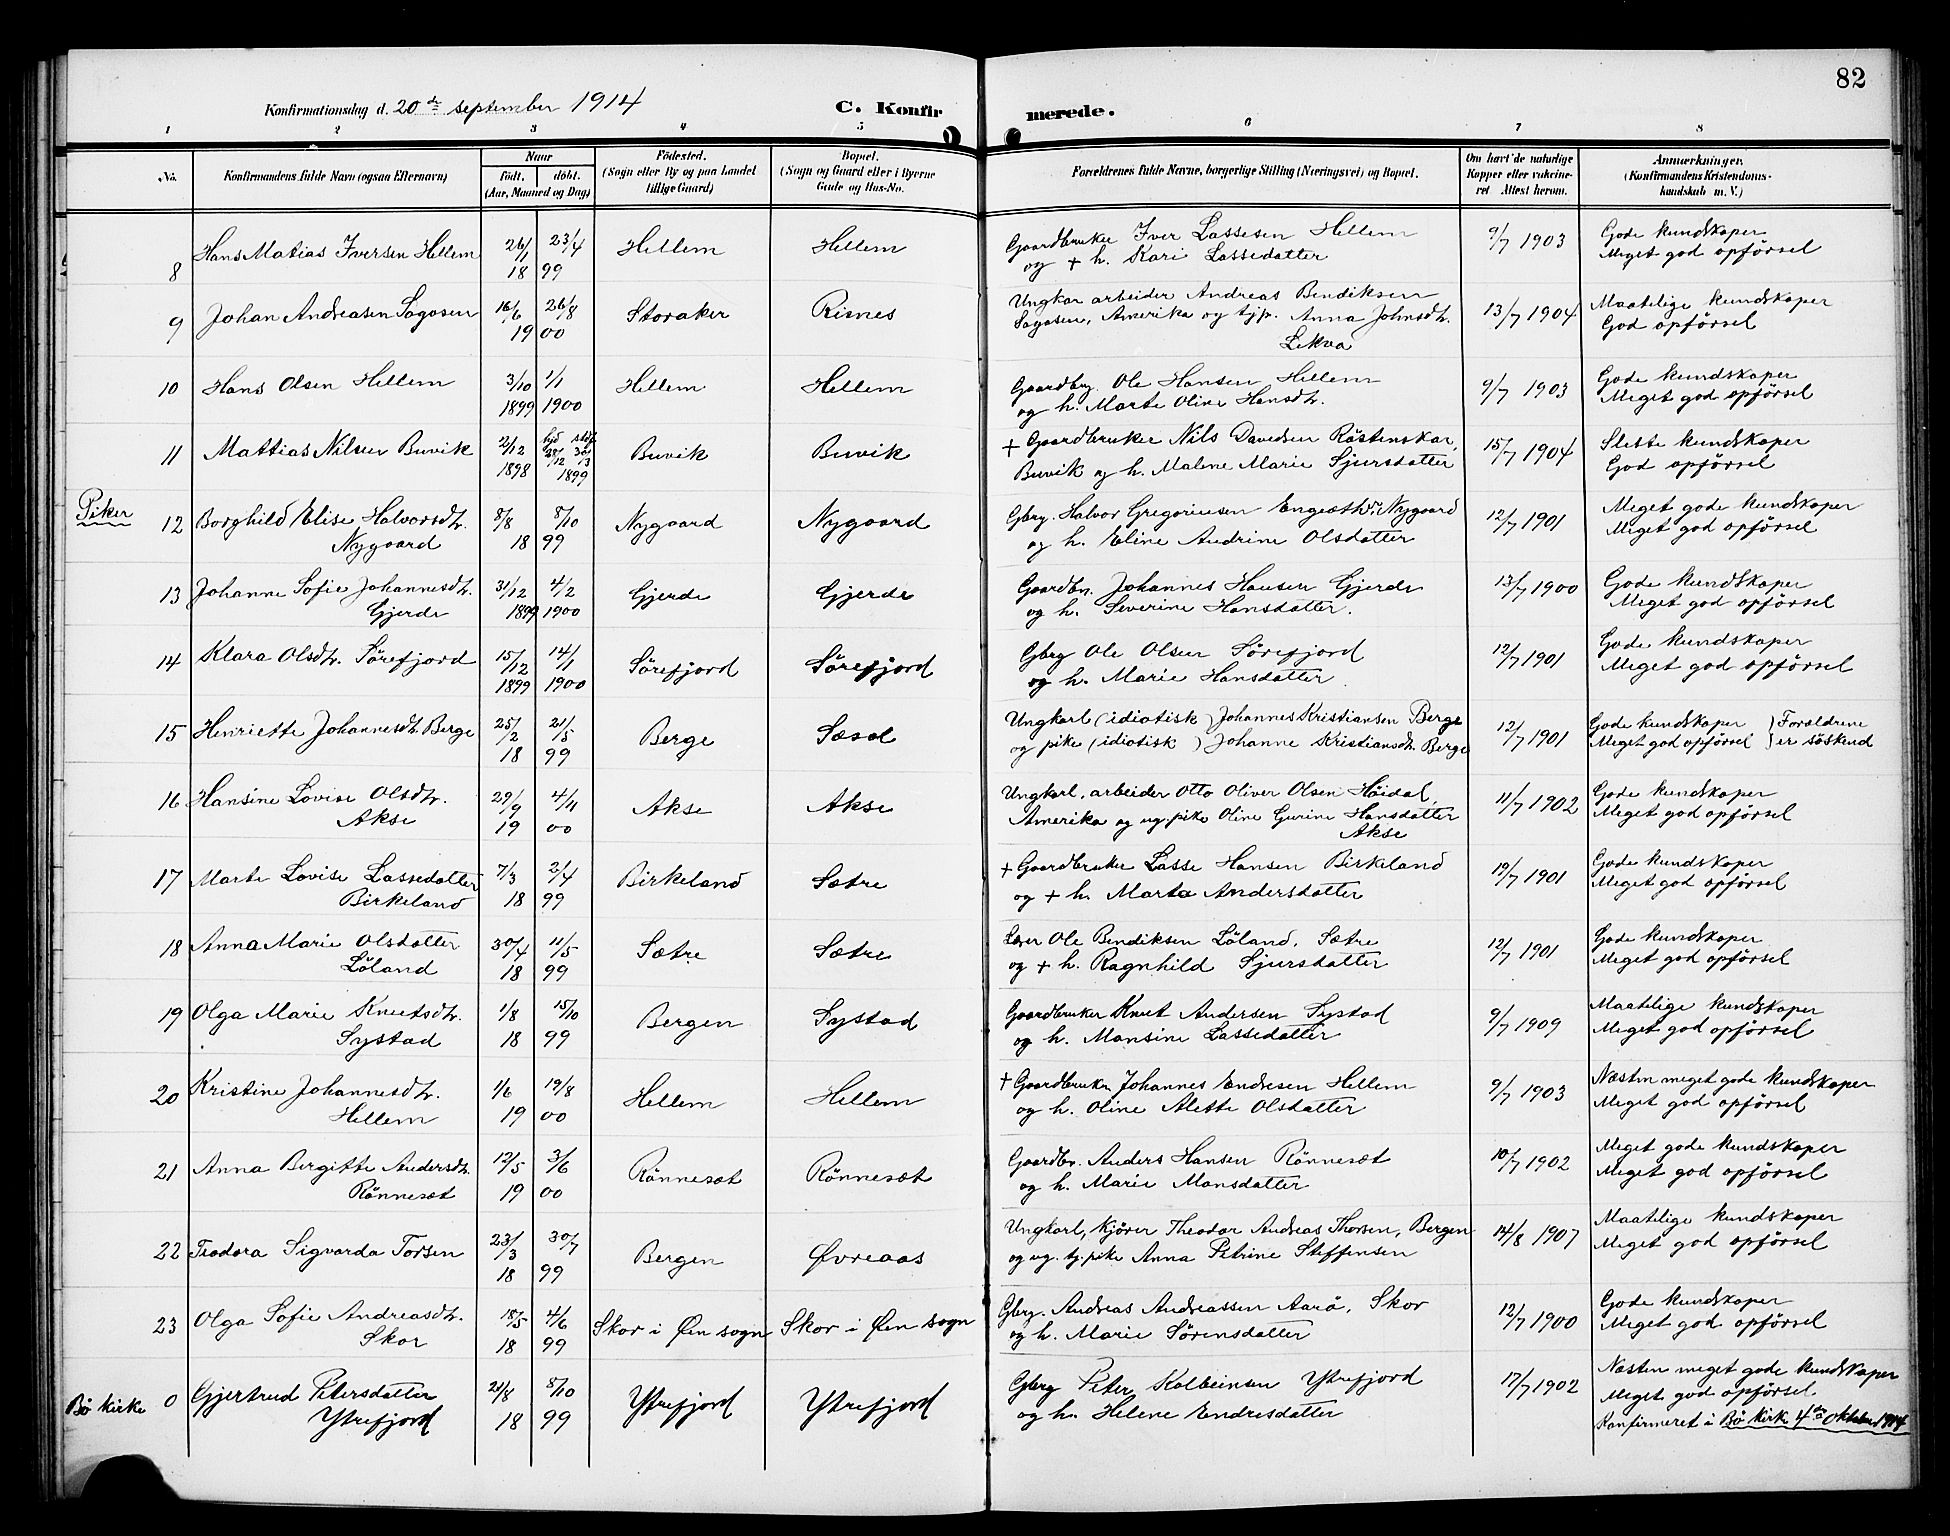 82
Konfirmationsdag d. 20de september 1914 C. Konfirmerede.
1 2 3 4 5 6 7 8
No. Konfirmandens fulde Navn (ogsaa Efternavn) Naar Født, døbt. (Aar, Maaned og Dag) Fødested. (Sogn eller By og paa Landet tillige Gaard) Bopæl. (Sogn og Gaard eller i Byerne Gade og Hus-No. Forældrenes fulde Navne, borgerlige Stilling (Næringsvei) og Bopæl. Om havt'de naturlige Kopper eller vaccineret Attest herom. Anmærkninger. (Konfirmandens Kristendomskundskab m. V.)
8 Hans Matias Iversen Hellem 26/1 23/4 Hellem Hellem Gaardbruker Iver Lassesen Hellem 9/7 1903 Gode kundskaper
18 99 og + h. Kari Lassedatter Meget god opförsel
9 Johan Andreasen Sagosen 16/6 26/8 Storaker Risnes Ungkar arbeider Andreas Bendiksen 13/7 1904 Maatelige kundskaper
19 00 Sagosen, Amerika og tjp. Anna Johnsdtr. God opförsel
Lekva
10 Hans Olsen Hellem 3/10 1/1 Hellem Hellem Gaardbr. Ole Hansen Hellem 9/7 1903 Gode kundskaper
1899 1900 og h. Marte Oline Hansdtr. Meget god opförsel
11 Mattias Nilsen Buvik 2/12 hjd 28/12 stdf. 30/3 Buvik Buvik + Gaardbruker Nils Davidsen Röstenskar, 15/7 1904 Slette kundskaper
1898 1899 Buvik og h. Malene Marie Sjursdatter God opförsel
Piker
12 Borghild Elise Halvorsdtr. 8/8 8/10 Nygaard Nygaard Gbrg. Halvor Gregoriusen Engesæth Nygaard 12/7 1901 Meget gode kundskaper
Nygaard 18 99 og h. Eline Andrine Olsdatter Meget god opförsel
13 Johanne Sofie Johannesdtr. 31/12 4/2 Gjerde Gjerde Gaardbr. Johannes Hansen Gjerde 13/7 1900 Gode kundskaper
Gjerde 1899 1900 og h. Severine Hansdatter. Meget god opförsel
14 Klara Olsdtr. Sörefjord 15/12 14/1 Sörefjord Sörefjord Gbrg Ole Olsen Sörefjord 12/7 1901 Gode kundskaper
1899 1900 og h. Marie Hansdatter Meget god opförsel
15 Henriette Johannesdtr. Berge 25/2 21/5 Berge Sæsol Ungkarl (idiotisk) Johannes Kristiansen Berge 12/7 1901 Gode kundskaper } Forældrene
18 99 og pike (idiotisk) Johanne Kristiansdtr. Berge Meget god opförsel } er söskend
16 Hansine Lovise Olsdtr. 29/9 4/11 Akse Akse Ungkarl, arbeider Otto Oliver Olsen Höidal, 11/7 1902 Gode kundskaper
Akse 19 00 Amerika og ug. pike Oline Gurine Hansdatter Meget god opförsel
Akse
17 Marte Lovise Lassedatter 7/3 2/4 Birkeland Sætre + Gaardbruker Lasse Hansen Birkeland 19/7 1901 Gode kundskaper
Birkeland 18 99 og + h. Marta Andersdatter Meget god opförsel
18 Anna Marie Olsdatter 30/4 11/5 Sætre Sætre Lærer Ole Bendiksen Löland, Sætre 12/7 1901 Gode kundskaper
Löland 18 99 og + h. Ragnhild Sjursdatter Meget god opförsel
19 Olga Marie Knutsdtr. 1/8 15/10 Bergen Systad Gaardbruker Knut Andersen Systad 9/7 1909 Maatelige kundskaper
Systad 18 99 og h. Mansine Lassedatter Meget god opförsel
20 Kristine Johannesdtr. 1/6 19/8 Hellem Hellem + Gaardbruker Johannes Endresen Hellem 9/7 1903 Næsten meget gode kundskaper
Hellem 19 00 og h. Oline Alette Olsdatter Meget god opförsel
21 Anna Bergitte Andersdtr. 12/5 3/6 Rönneset Rönneset Gaardbr. Anders Hansen Rönneset 10/7 1902 Meget gode kundskaper
Rönneset 19 00 og h. Marie Mansdatter Meget god opförsel
22 Teodora Sigvarda Torsen 23/3 30/7 Bergen Øvreaas Ungkarl, kjörer Theodor Andreas Thorsen, Bergen 14/8 1907 Maatelige kundskaper
18 99 og ug. tj. pike Anna Petrine Steffensen Meget god opförsel
23 Olga Sofie Andreasdtr. 18/5 4/6 Skor i Øen sogn Skor i Øen sogn Gbrg. Andreas Andreassen Aarö, Skor 12/7 1900 Gode kundskaper
Skor 18 99 og h. Marie Sörensdatter Meget god opförsel
Bö kirke 0 Gjertrud Petersdatter 21/8 8/10 Ytrefjord Ytrefjord Gbrg Peter Kolbeinsen Ytrefjord 17/7 1902 Næsten meget gode kundskaper
Ytrefjord 18 99 og h. Helene Endresdatter Meget god opförsel
Konfirmeret i Bö kirk 4de oktober 1914